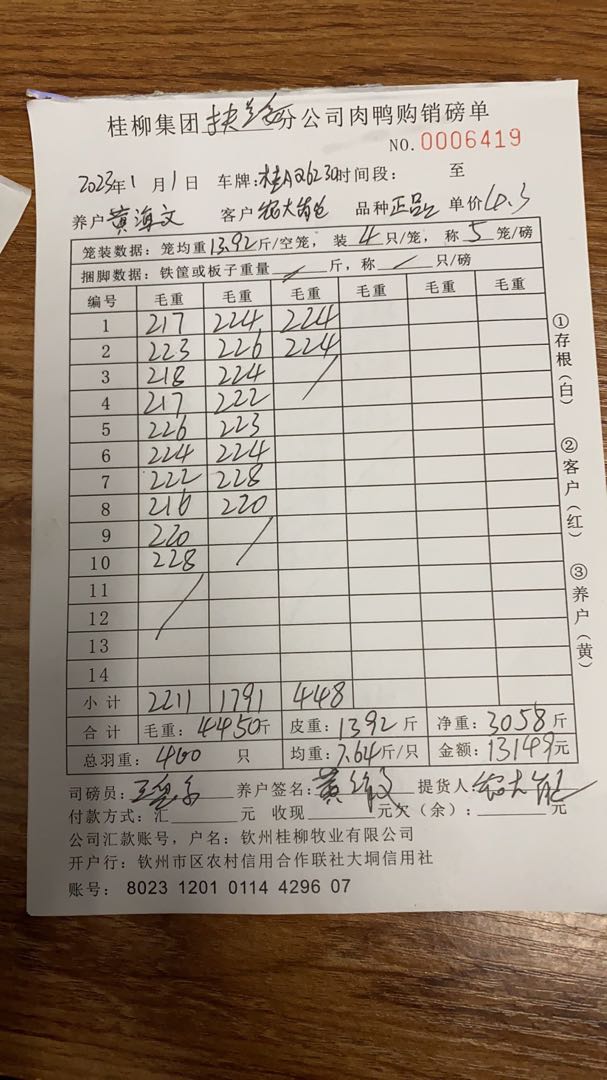 桂柳集团扶绥分公司肉鸭购销磅单
NO.0006419
2023年1月1日 车牌:桂AQ6230时间段: 至
养户黄海文 客户 品种正品 单价4.3
笼装数据: 笼均重13.92斤/空笼, 装4只/笼, 称5笼/磅
捆脚数据: 铁筐或板子重量/斤, 称/只/磅
编号 毛重 毛重 毛重 毛重 毛重 毛重
1 217 224 224
2 223 226 224
3 218 224 /
4 217 222
5 226 223
6 224 224
7 222 228
8 216 220
9 220 /
10 228
11 /
12
13
14
小计 2211 1791 448
合计 毛重: 4450斤 皮重: 1392斤 净重: 3058斤
总羽重: 400只 均重: 7.64斤/只 金额: 13149元
司磅员: 养户签名: 黄海文 提货人:
付款方式: 汇 元 收现 元欠(余): 元
公司汇款账号, 户名: 钦州桂柳牧业有限公司
开户行: 钦州市区农村信用合作联社大垌信用社
账号: 8023 1201 0114 4296 07
①存根(白)
②客户(红)
③养户(黄)